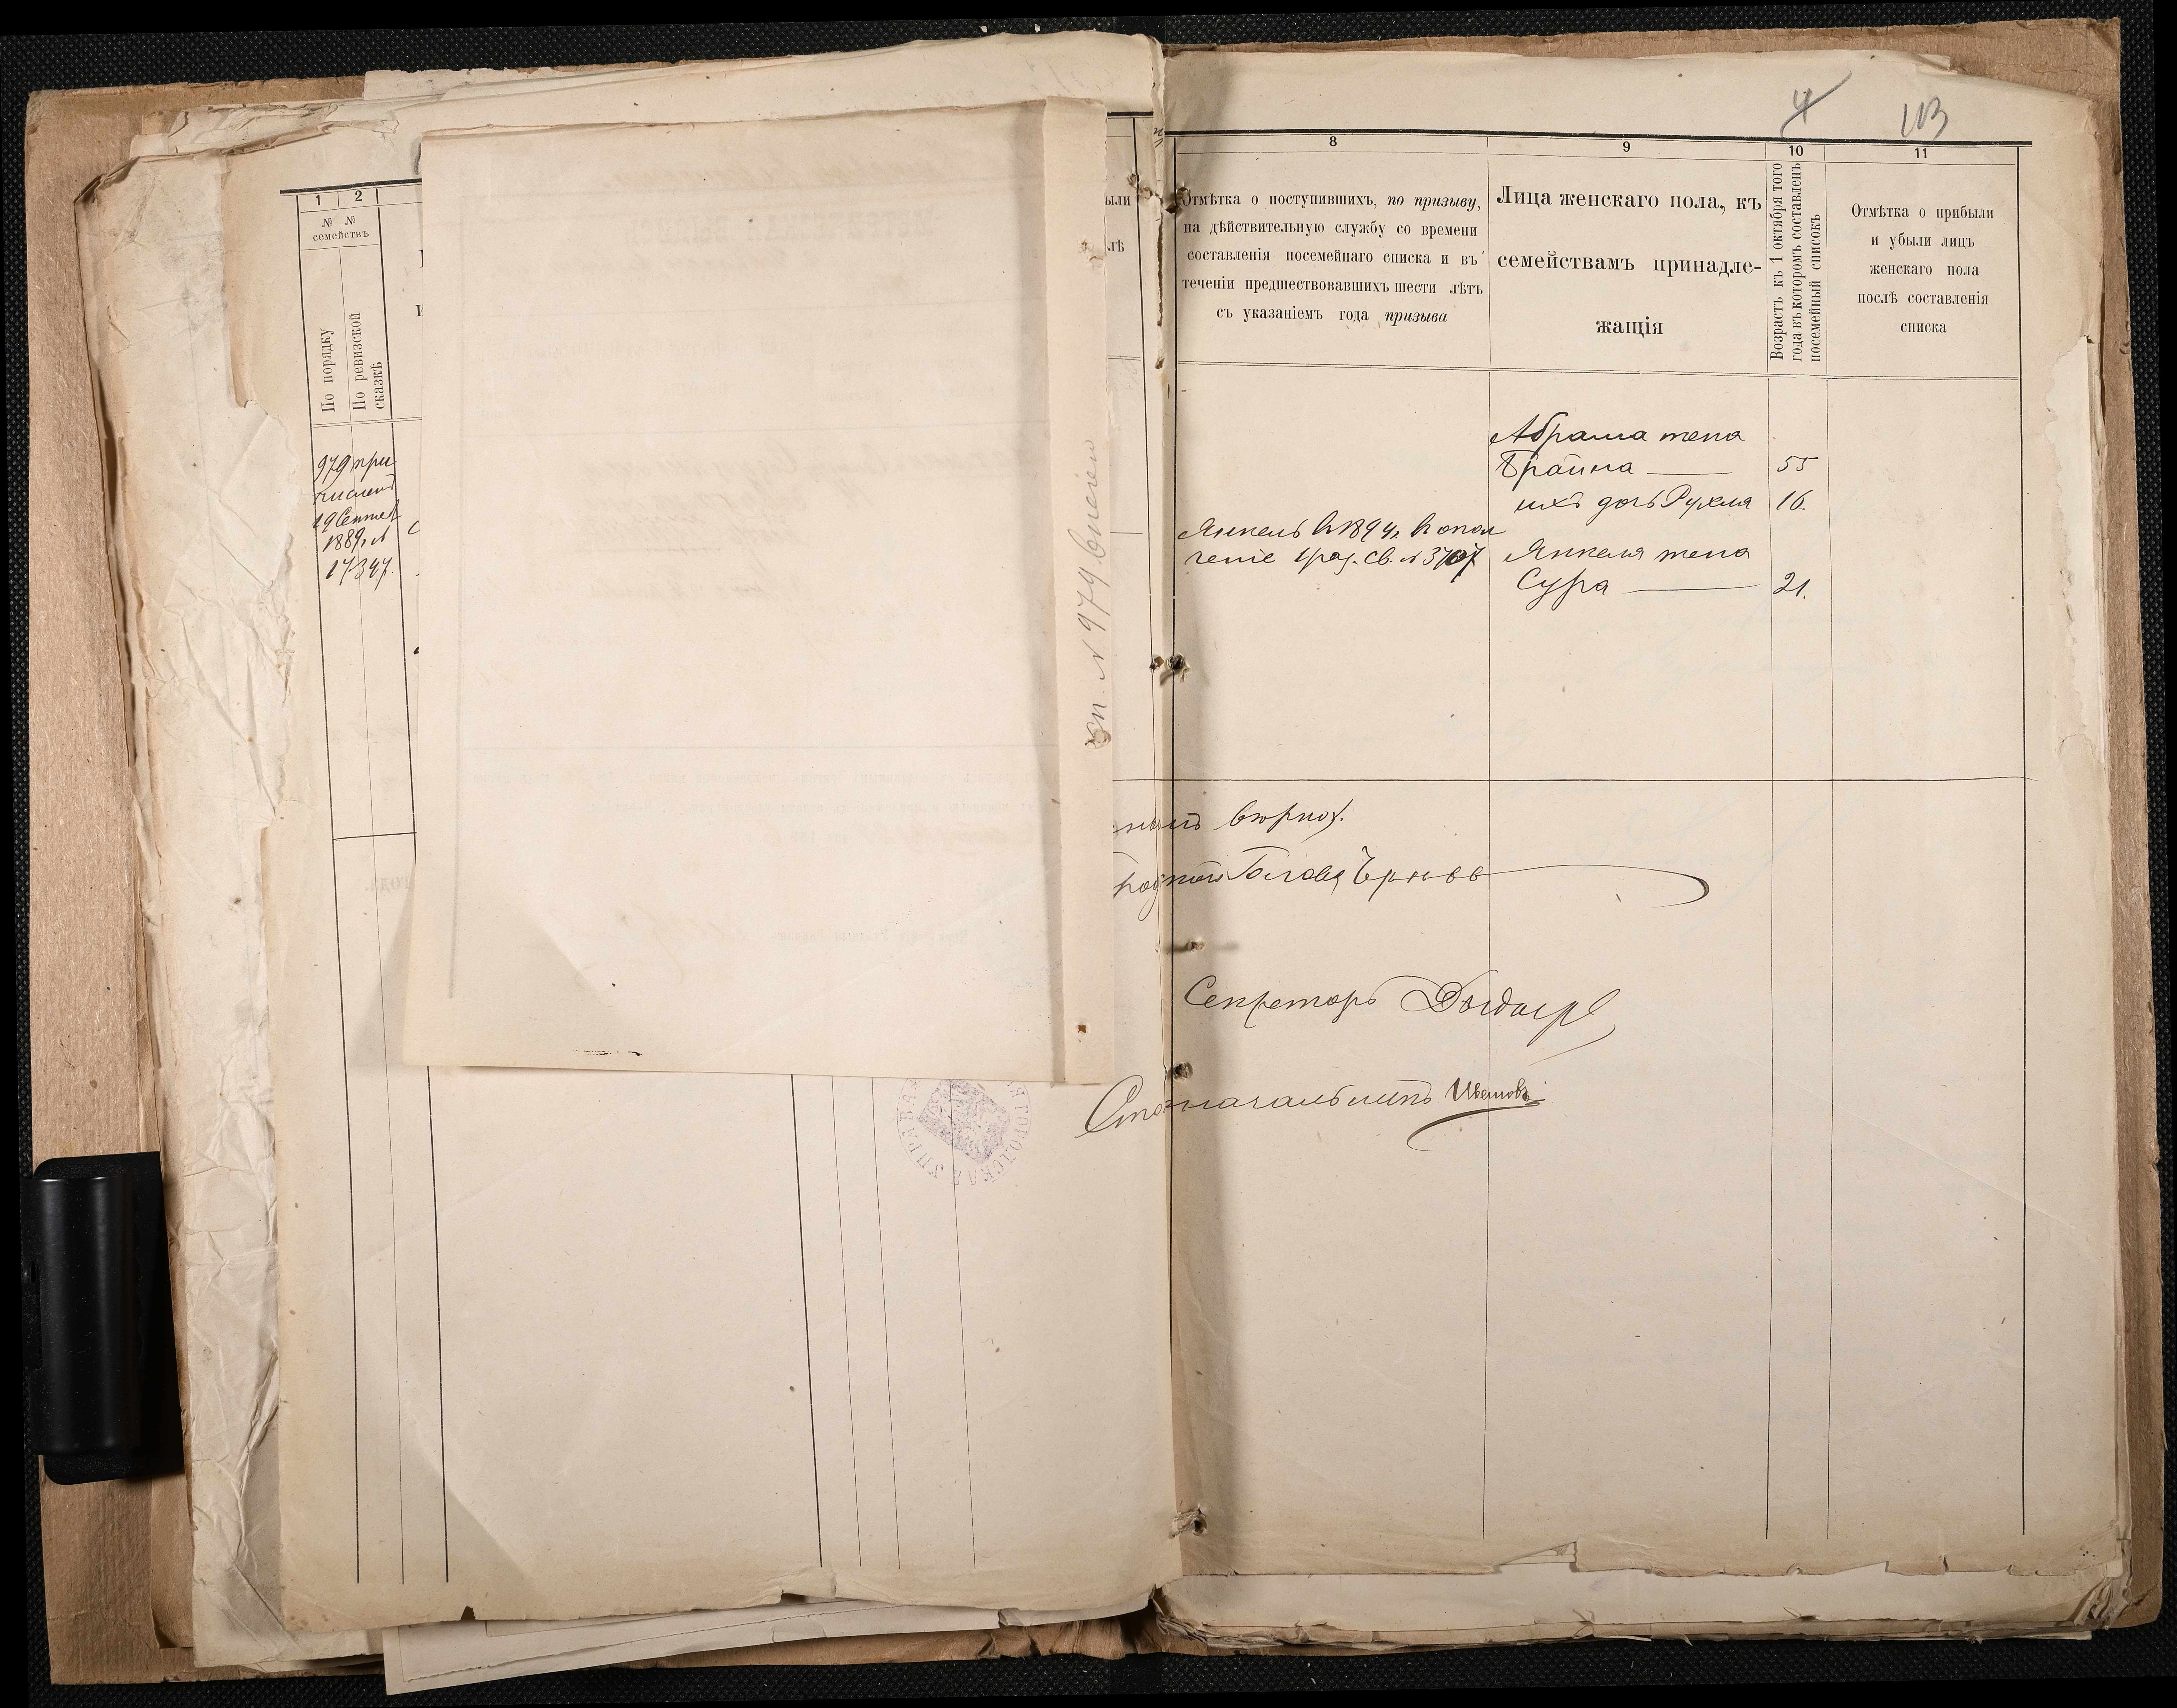 1 2
№ №
семействъ
По порядку
По ревизской
сказкѣ
979 при
численъ
19 Сентяб
1889 г. №
17347.
сп. № 979 внесен
ыли
лѣ
4 113
8
Отмѣтка о поступившихъ, по призыву,
на дѣйствительную службу со времени
составленія посемейнаго списка и въ
теченіи предшествовавшихъ шести лѣтъ
съ указаніемъ года призыва
9
Лица женскаго пола, къ
семействамъ принадле-
жащія
10
Возрастъ къ 1 октября того
года въ которомъ составленъ
посемейный списокъ
11
Отмѣтка о прибыли
и убыли лицъ
женскаго пола
послѣ составленія
списка
Абрама жена
Брайна 55
ихъ дочь Рухля 16.
Янкель в 1894 г. в опол
ченіе 1 раз. св. № 3707
Янкеля жена
Сура 21.
нымъ вѣрно.
родской Голова
Секретарь
Столоначальникъ
ГОРОДСКАЯ УПРАВА